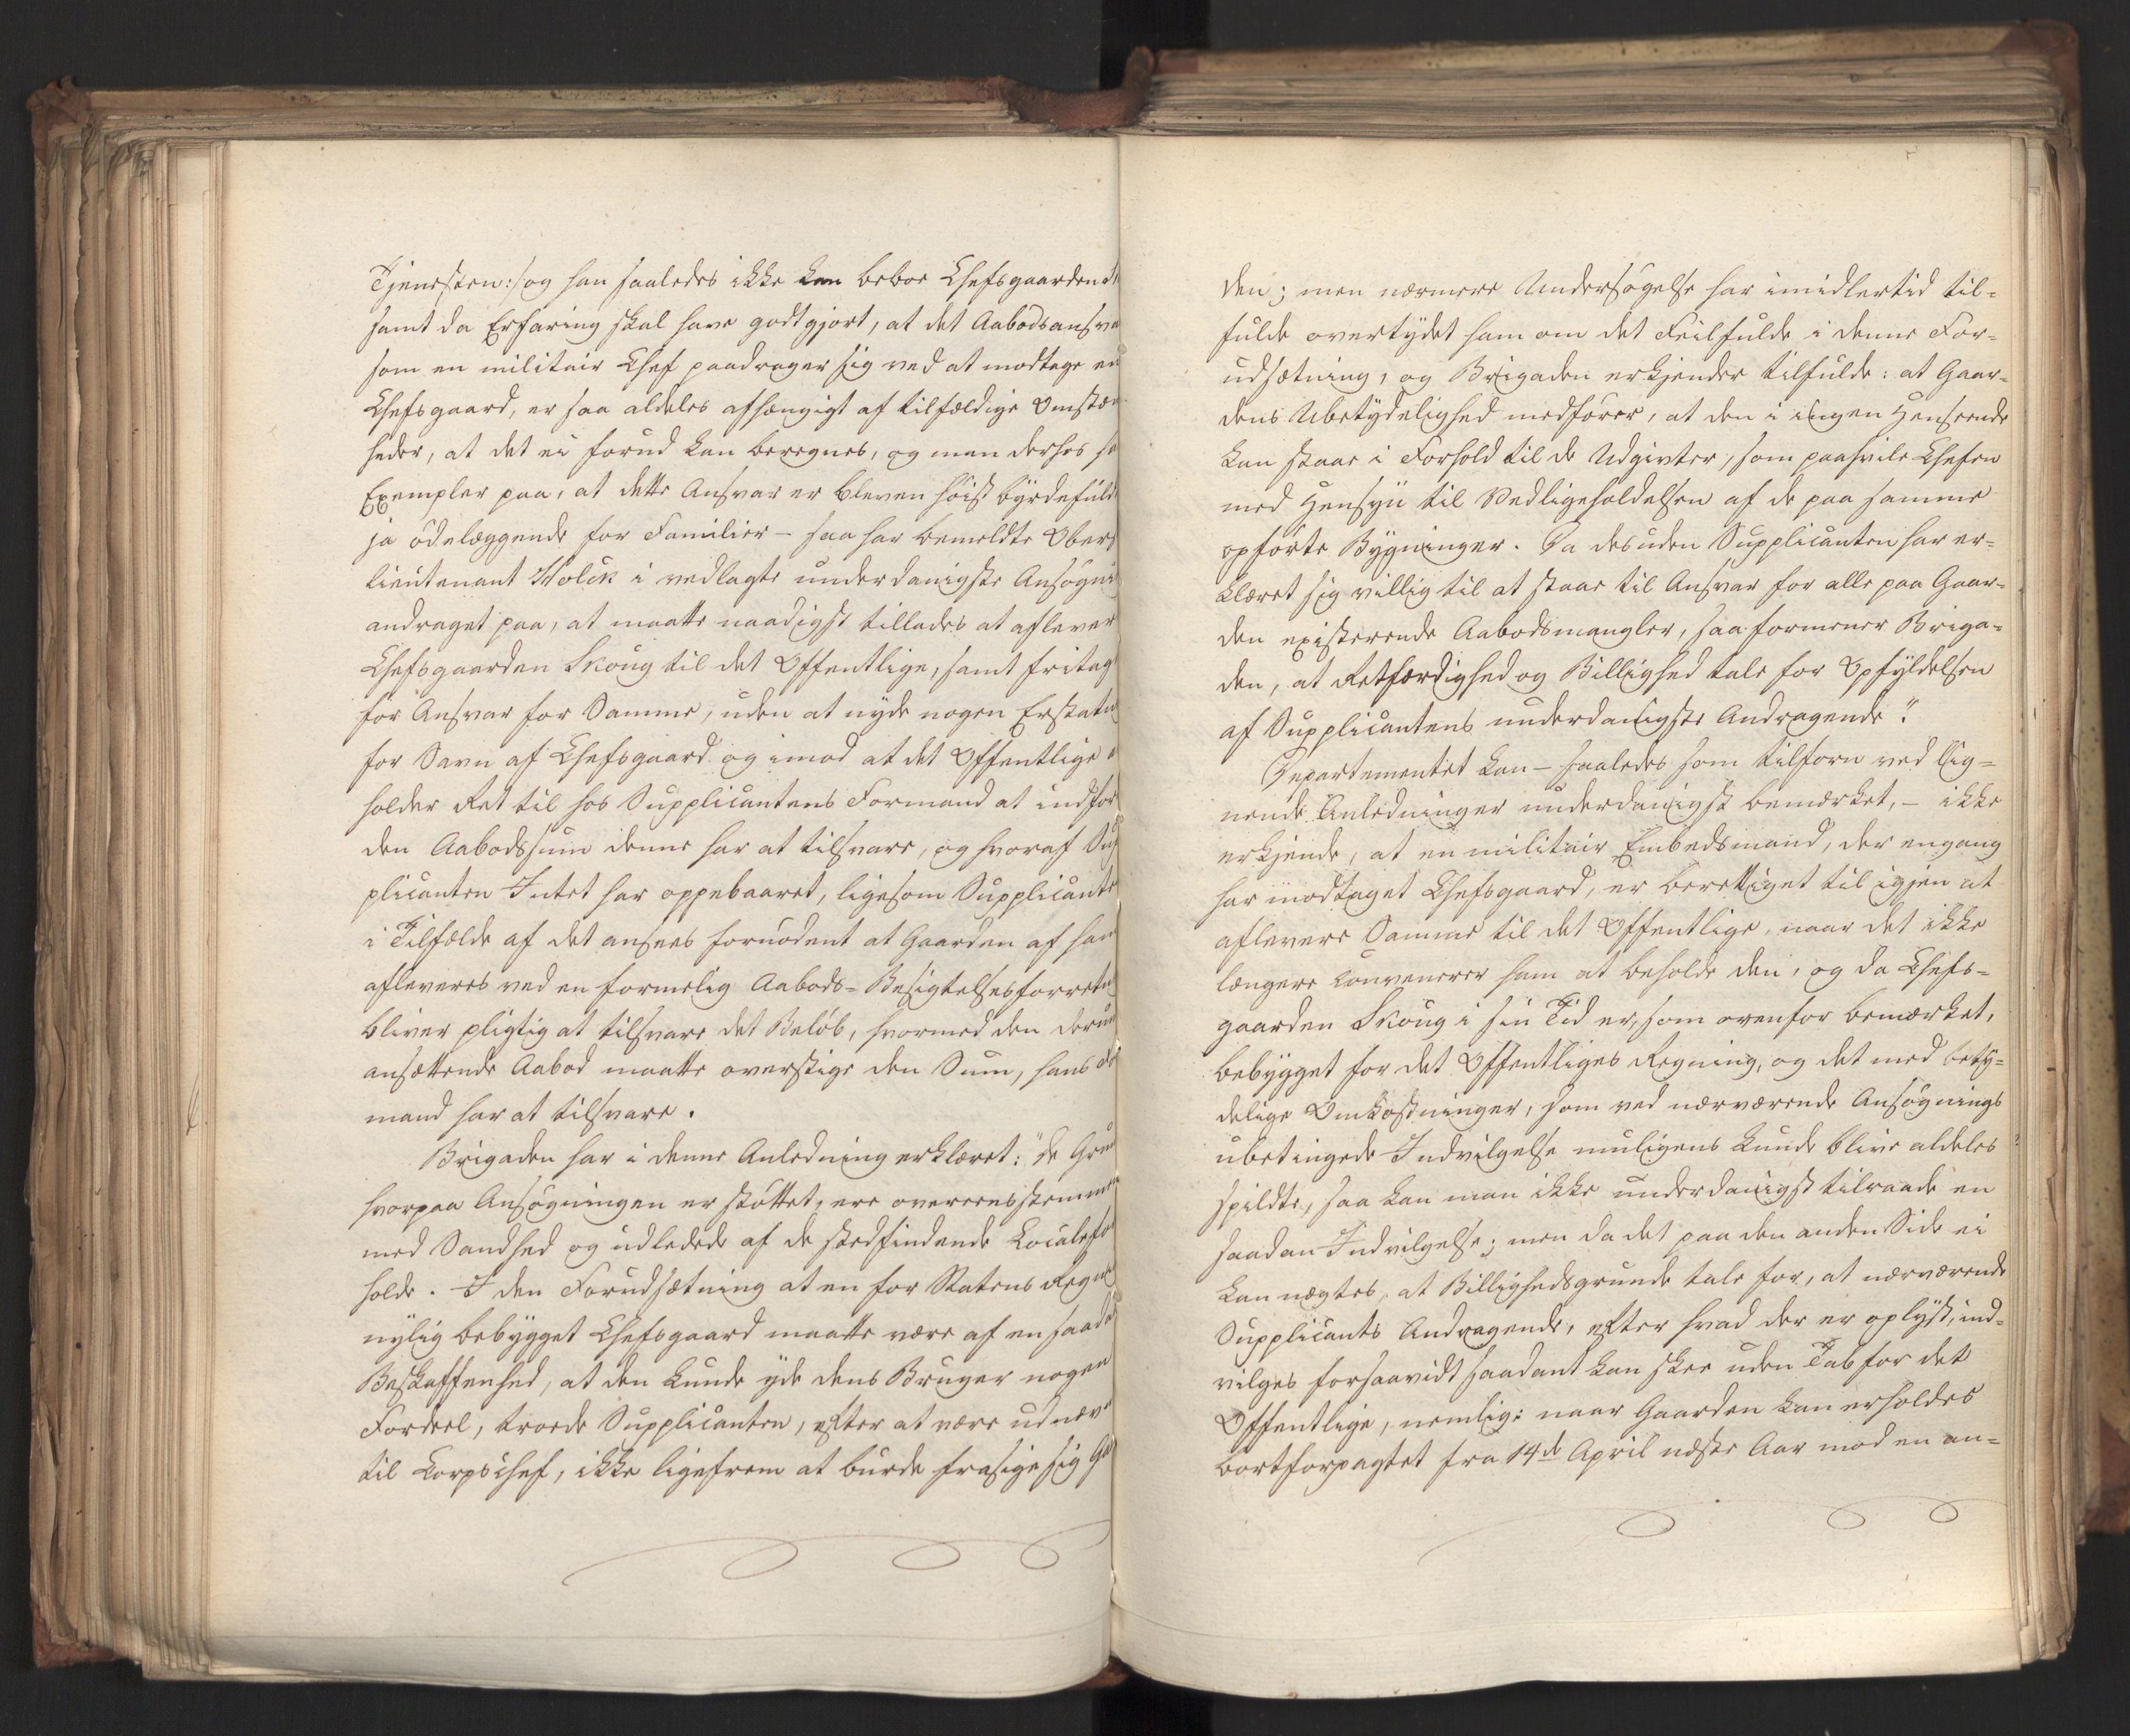 Tjenesten:/ og han saaledes ikke kan beboe Chefsgaarden
samt da Erfaring skal have godtgjort, at det Aabodsansva
som en militair Chef paadrager sig ved at modtage en
Chefsgaard, er saa aldeles afhængigt af tilfældige Omstæn
heder, at det ei forud kan beregnes, og man derhos ha
Exempler paa, at dette Ansvar er bleven høist byrdefuld
ja ødelæggende for Familier – saa har bemeldte Oberst
lieutenant Holck i vedlagte underdanigste Ansøgni
andraget paa, at maatte naadigst tillades at aflever
Chefsgaarden Skoug til det Offentlige, samt fritag
for Ansvar for Samme, uden at nyde nogen Erstatn
for Savn af Chefsgaard og imod at det Offentlige
holder Ret til hos Supplicantens Formand at indfor
den Aabodssum denne har at tilsvare, og hvoraf Sup
plicanten Intet har oppebaaret, ligesom Supplicante
i Tilfælde af det ansees fornødent at Gaarden af ham
afleveres ved en formelig Aabods-Besigtelsesforretn
bliver pligtig at tilsvare det Beløb, hvormed den derun
ansættende Aabod maatte overstige den Sum, hans
mand har at tilsvare.
Brigaden har i denne Anledning erklæret: "de Grun
hvorpaa Ansøgningen er støttet, ere overeensstemmen
med Sandhed og udledede af de stedfindende Localefor
holde. I den Forudsætning at en for Statens Regni
nylig bebygget Chefsgaard maatte være af en saada
Beskaffenhed, at den kunde yde dens Bruger nogen
Fordeel, troede Supplicanten, efter at være udnæv
til Corpschef, ikke ligefrem at burde frasige sig Ga
den; men nærmere Undersøgelse har imidlertid til-
fulde overtydet ham om det Feilfulde i denne For-
udsætning, og Brigaden erkjender tilfulde: at Gaar-
dens Ubetydelighed medfører, at den i ingen Henseende
kan staae i Forhold til de Udgivter, som paahvile Chefen
med Hensyn til Vedligeholdelsen af de paa samme
opførte Bygninger. Da desuden Supplicanten har er-
klæret sig villig til at staae til Ansvar for alle paa Gaar-
den existerende Aabodsmangler, saa formener Briga-
den, at Retfærdighed og Billighed tale for Opfyldelsen
af Supplicantens underdanigste Andragende".
Departementet kan – saaledes som tilforn ved lig-
nende Anledninger underdanigst bemærket, – ikke
erkjende, at en militair Embedsmand, der engang
har modtaget Chefsgaard, er berettiget til igjen at
aflevere Samme til det Offentlige, naar det ikke
længere convenerer ham at beholde den, og da Chefs-
gaarden Skoug i sin Tid er, som ovenfor bemærket,
bebygget for det Offentliges Regning, og det med bety-
delige Omkostninger, som ved nærværende Ansøgnings
ubetingede Indvilgelse muligens kunde blive aldeles
spildte, saa kan man ikke underdanigst tilraade en
saadan Indvilgelse; men da det paa den anden Side ei
kan nægtes, at Billighedsgrunde tale for, at nærværende
Supplicants Andragende, efter hvad der er oplyst, ind-
vilges forsaavidt saadant kan skee uden Tab for det
Offentlige, nemlig: naar Gaarden kan erholdes
bortforpagtet fra 14de April næste Aar mod en an-